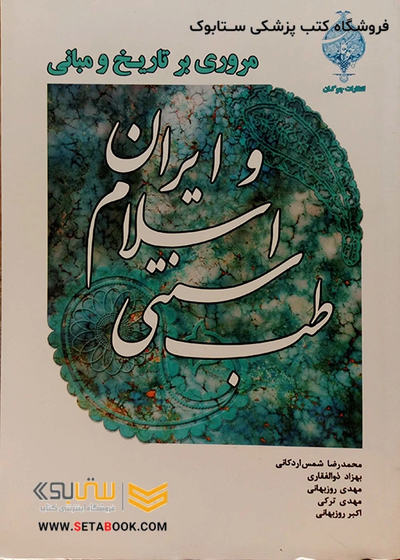 فروشگاه کتب پزشکی ستابوک
انتشارات چوگان
مروری بر تاریخ و مبانی
طب سنتی اسلام و ایران
محمدرضا شمس‌اردکانی
بهزاد ذوالفقاری
مهدی روزبهانی
مهدی ترکی
اکبر روزبهانی
ستابوک
فروشگاه اینترنتی کتاب
WWW.SETABOOK.COM